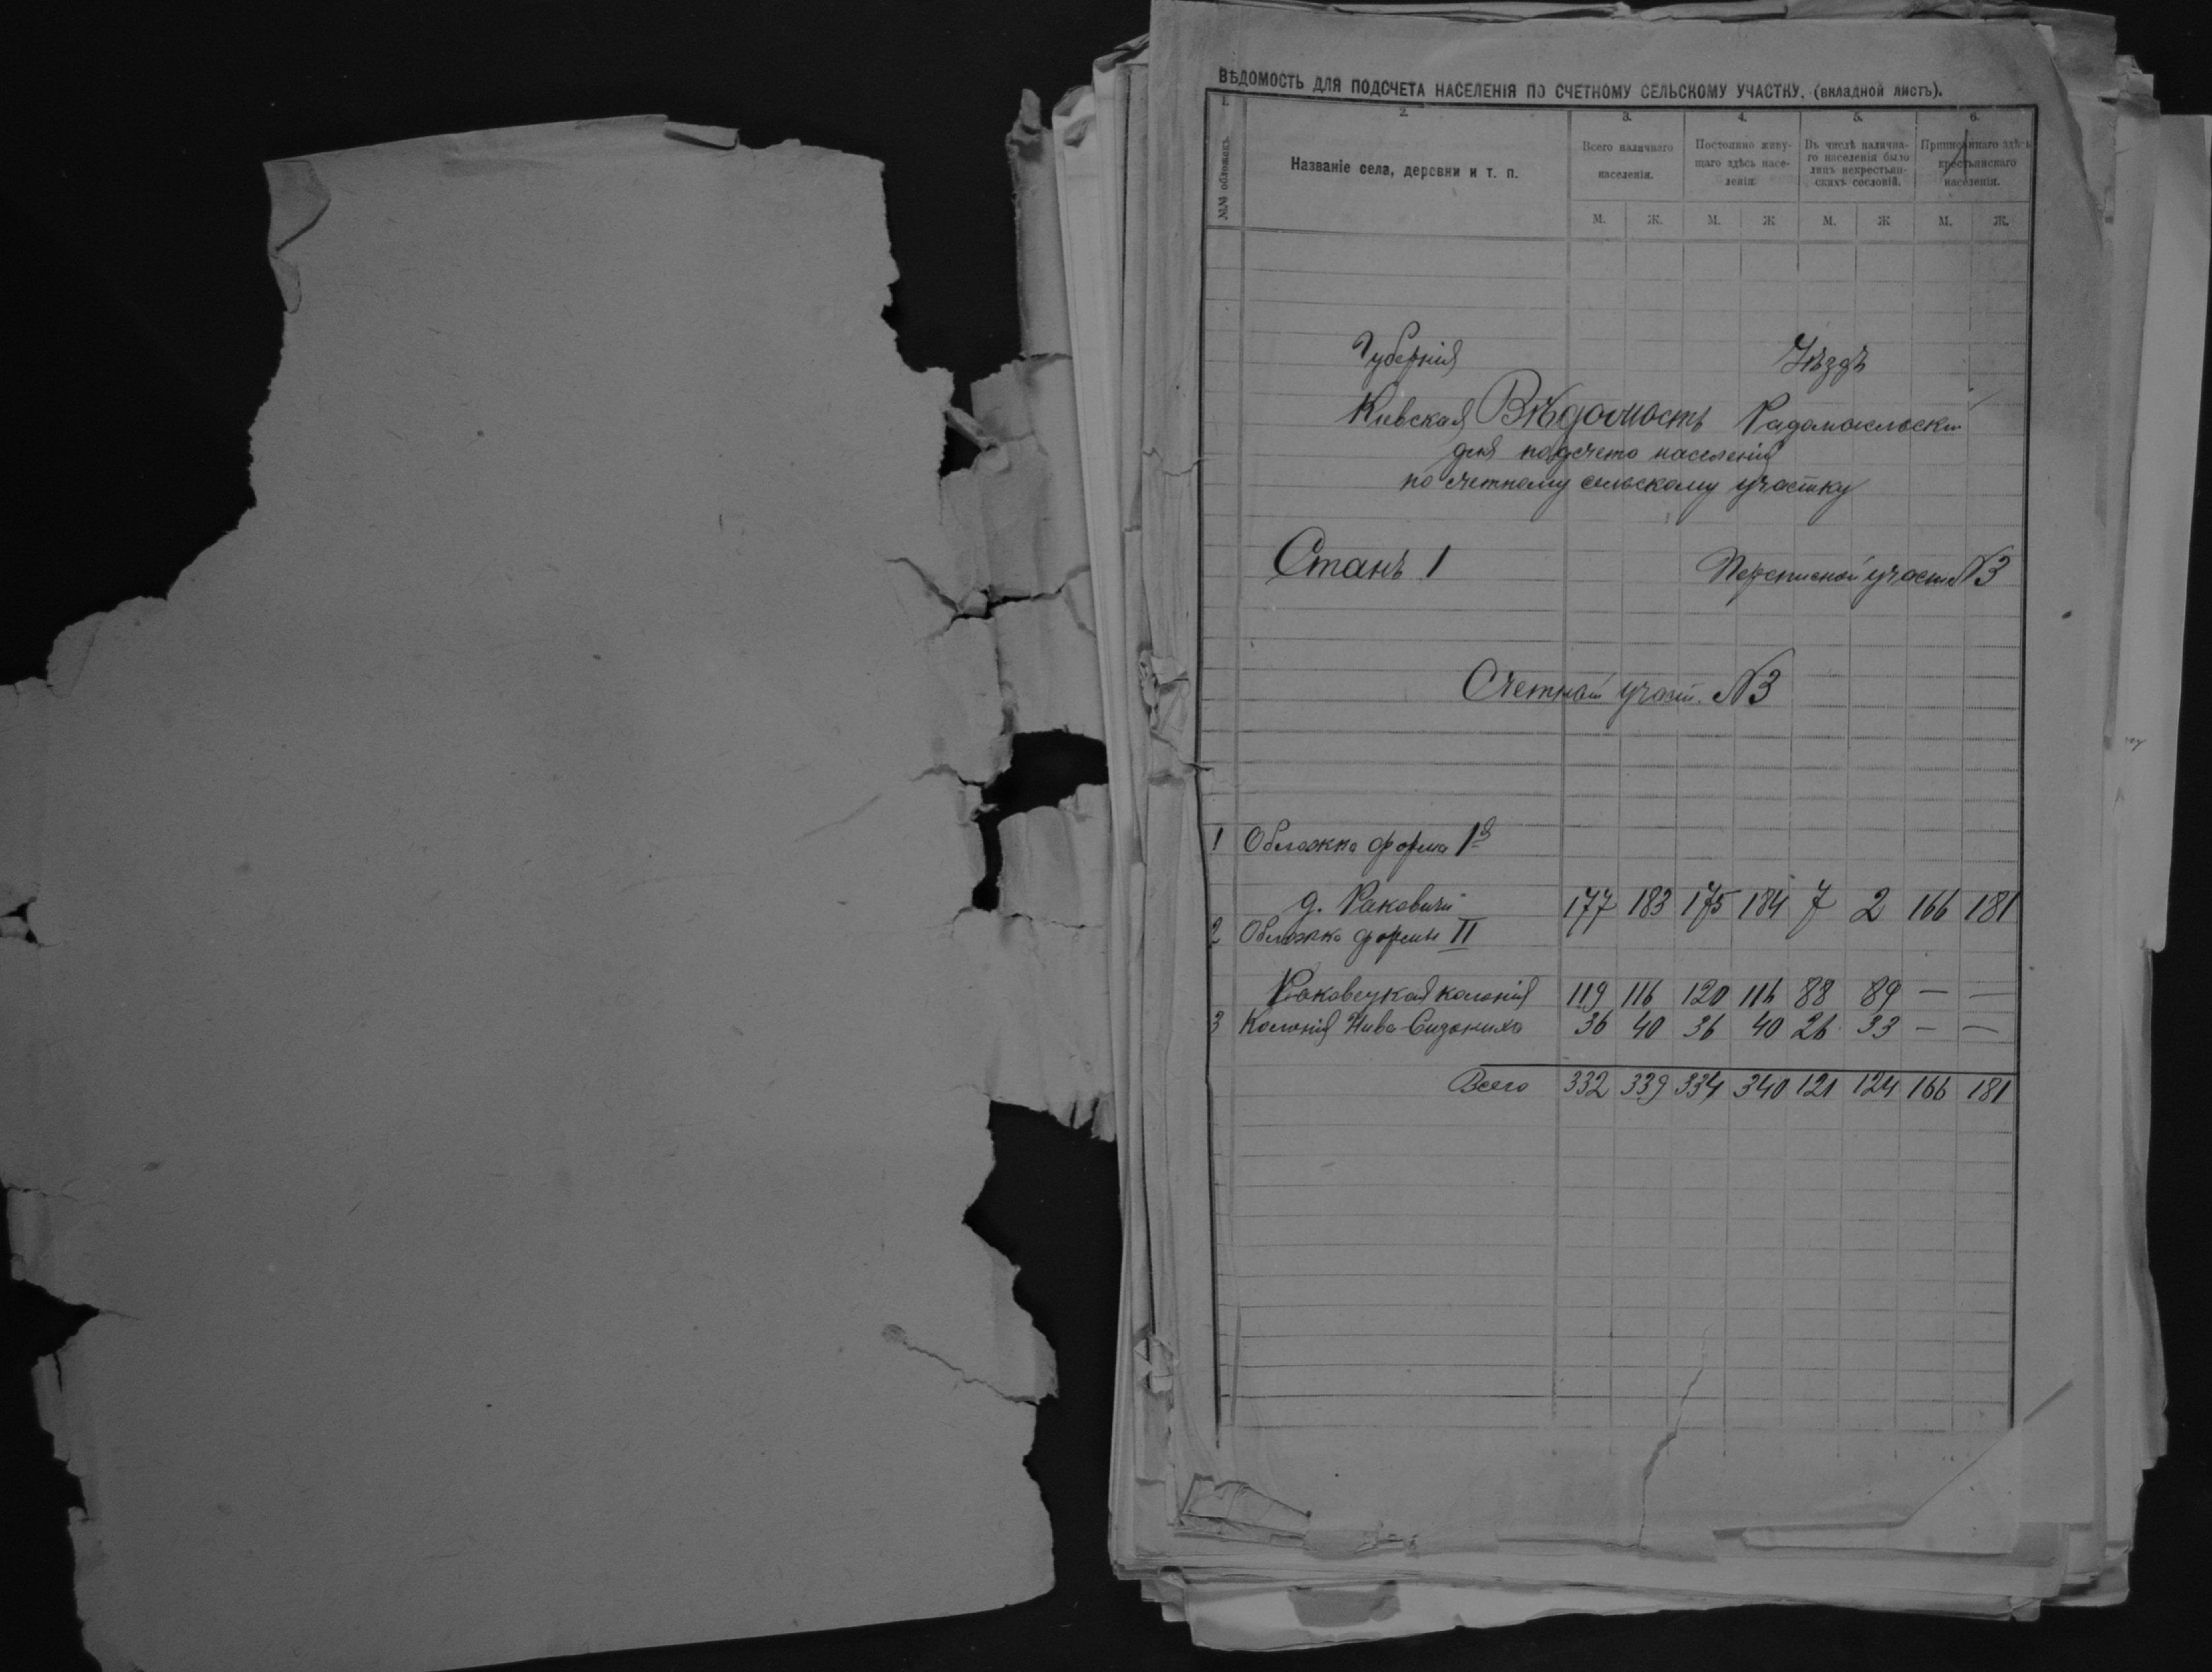 ВѢДОМОСТЬ ДЛЯ ПОДСЧЕТА НАСЕЛЕНІЯ ПО СЧЕТНОМУ СЕЛЬСКОМУ УЧАСТКУ. (вкладной листъ).
1. 2. 3. 4. 5. 6.
№№ обложекъ.
Названіе села, деревни и т. п.
Всего наличнаго
населенія.
Постоянно живу-
щаго здѣсь насе-
ленія
Въ числѣ налична-
го населенія было
лицъ некрестьян-
скихъ сословій.
Приписаннаго здѣсь
крестьянскаго
населенія.
М. Ж. М. Ж М. Ж М. Ж.
Губернія Уѣздъ
Кіевская Вѣдомость Радомысльскій
для подсчета населенія
по счетному сельскому участку
Станъ 1 Переписной участ №3
Счетный участ. №3
1 Обложка форма 1я
д. Раковичи 177 183 175 184 7 2 166 181
2 Обложка формы II
Раковецкая колонія 119 116 120 116 88 89 — —
3 Колонія Нива 36 40 36 40 26 33 — —
Всего 332 339 334 340 121 124 166 181